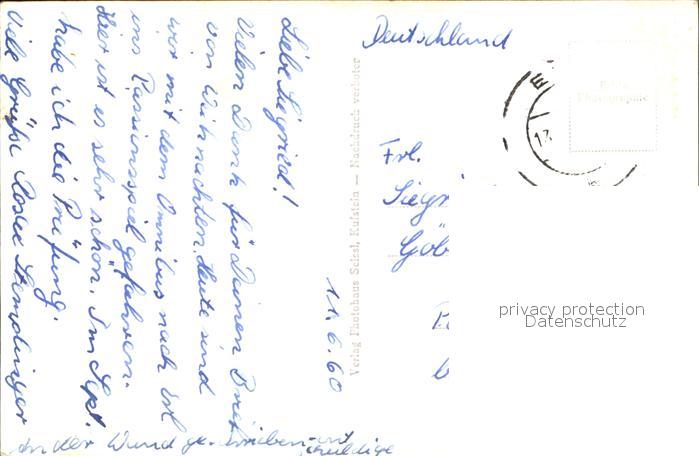 Deutschland
11.6.60
Liebe Siegried!
Vielen Dank für Deinen Brief
von Weihnachten. Heute sind
wir mit dem Omnibus nach Erl
ins Passionsspiel gefahren.
Hier ist es sehr schön. Im Sept.
habe ich die Prüfung.
Viele Grüße
An der Wand geschrieben ent
schuldige
Verlag Photohaus Schsl, Kufstein — Nachdruck verboten
Frl.
Siegr
Göb
Echte
Photographie
privacy protection
Datenschutz